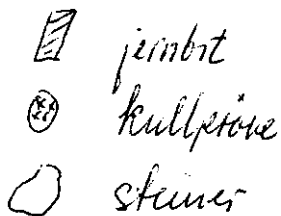 jernbit
kullpröve
steiner